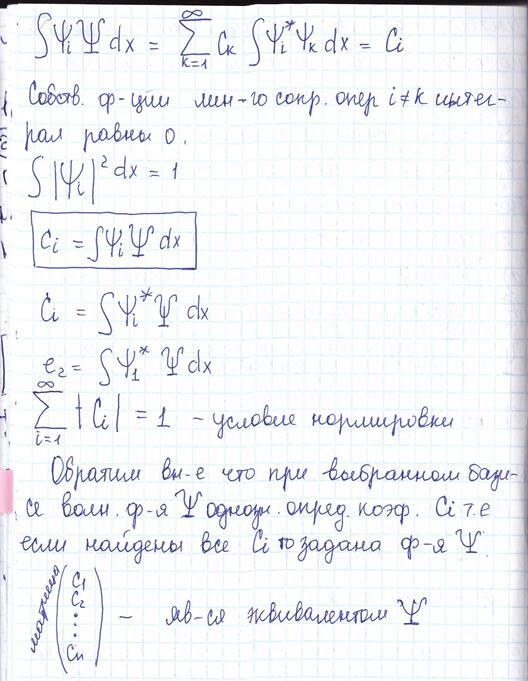 ∫Ψi Ψ dx = ∑_{k=1}^{∞} Ck ∫Ψi* Ψk dx = Ci
Собств. ф-ции лин-го сопр. опер i ≠ k интег-
рал равны 0.
∫|Ψi|² dx = 1
Ci = ∫Ψi Ψ dx
Ci = ∫Ψi* Ψ dx
e₂ = ∫Ψ₁* Ψ dx
∑_{i=1}^{∞} |Ci| = 1 – условие нормировки
Обратим вн-е что при выбранном бази-
се волн. ф-я Ψ однозн. опред. коэф. Ci т.е
если найдены все Ci то задана ф-я Ψ.
матрица (C1 C2 ⋮ Cn) – яв-ся эквивалентом Ψ